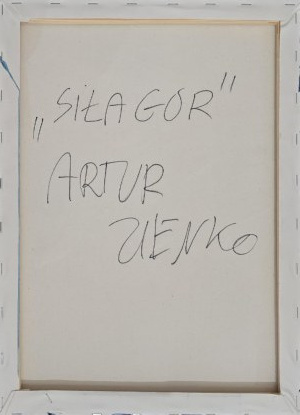 „SIŁA GÓR"
ARTUR
ZIENKO